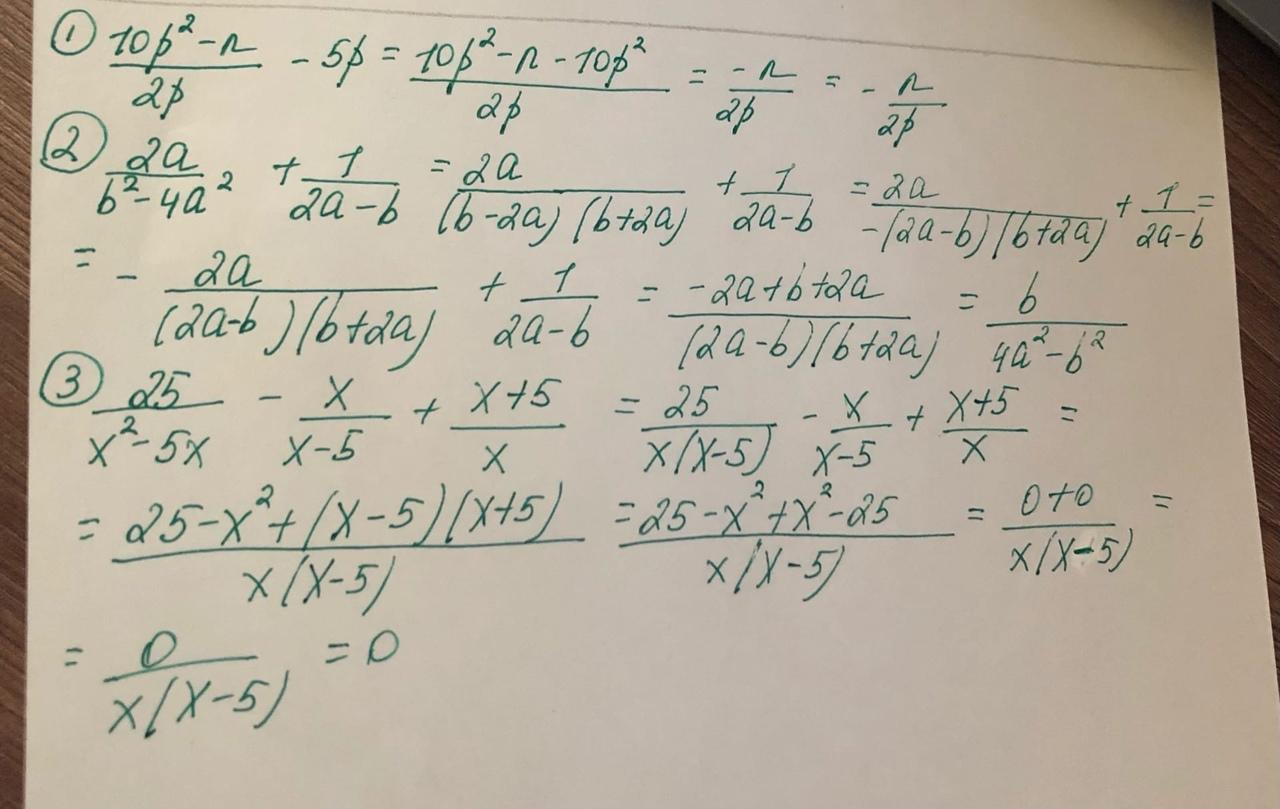 ① (10p² - n)/(2p) - 5p = (10p² - n - 10p²)/(2p) = (-n)/(2p) = - n/(2p)
② 2a/(b² - 4a²) + 1/(2a - b) = 2a/((b - 2a)(b + 2a)) + 1/(2a - b) = 2a/(-(2a - b)(b + 2a)) + 1/(2a - b) =
= - 2a/((2a - b)(b + 2a)) + 1/(2a - b) = (-2a + b + 2a)/((2a - b)(b + 2a)) = b/(4a² - b²)
③ 25/(x² - 5x) - x/(x - 5) + (x + 5)/x = 25/(x(x - 5)) - x/(x - 5) + (x + 5)/x =
= (25 - x² + (x - 5)(x + 5))/(x(x - 5)) = (25 - x² + x² - 25)/(x(x - 5)) = (0 + 0)/(x(x - 5)) =
= 0/(x(x - 5)) = 0